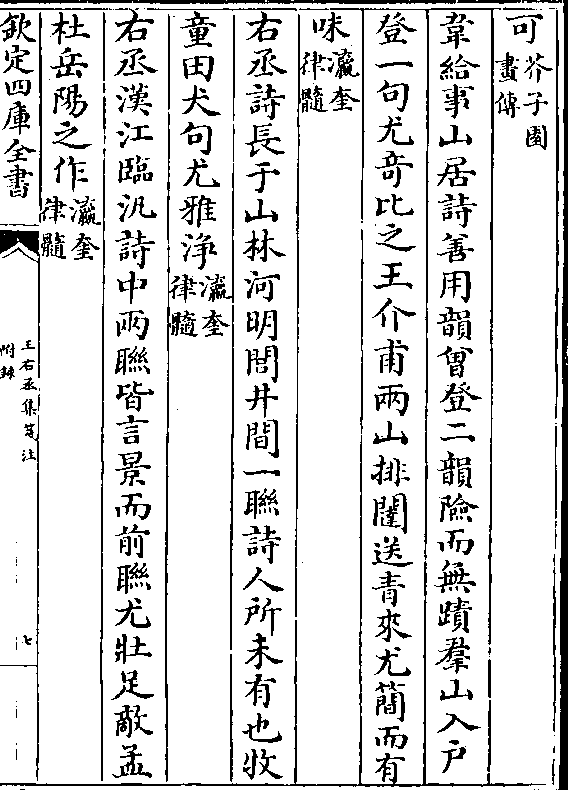 可芥子園畫傳
韋給事山居詩善用韻曾登二韻險而無蹟羣山入戶
登一句尤奇比之王介甫兩山排闥送青來尤簡而有
味瀛奎律髓
右丞詩長于山林河明閭井間一聯詩人所未有也牧
童田犬句尤雅淨瀛奎律髓
右丞漢江臨汎詩中兩聯皆言景而前聯尤壯足敵孟
杜岳陽之作瀛奎律髓
欽定四庫全書
王右丞集箋注
附錄
七